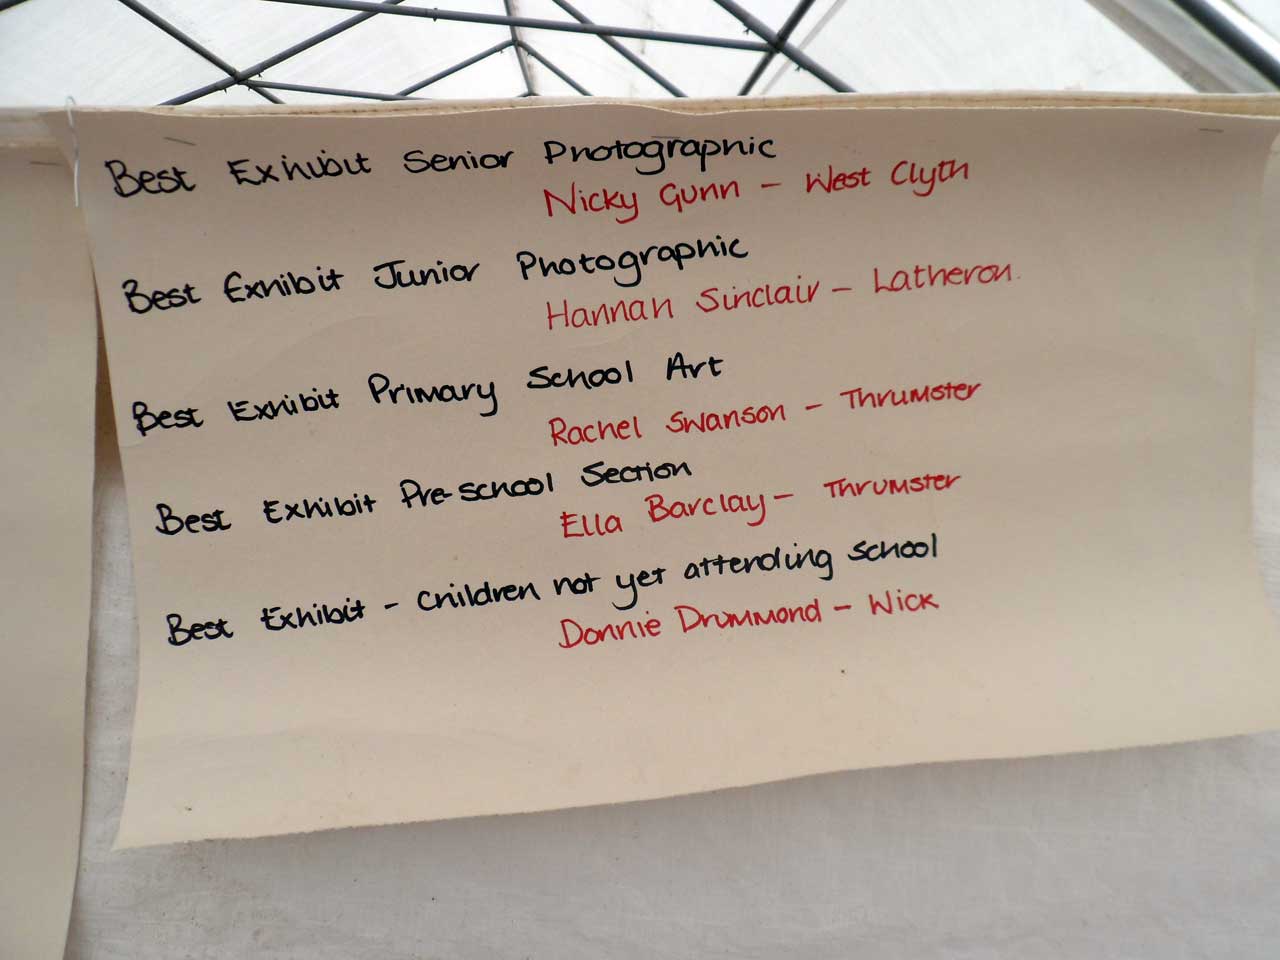 Best Exhibit Senior Photographic
Nicky Gunn - West Clyth
Best Exhibit Junior Photographic
Hannah Sinclair - Latheron.
Best Exhibit Primary School Art
Rachel Swanson - Thrumster
Best Exhibit Pre-school Section
Ella Barclay - Thrumster
Best Exhibit - children not yet attending school
Donnie Drummond - Wick